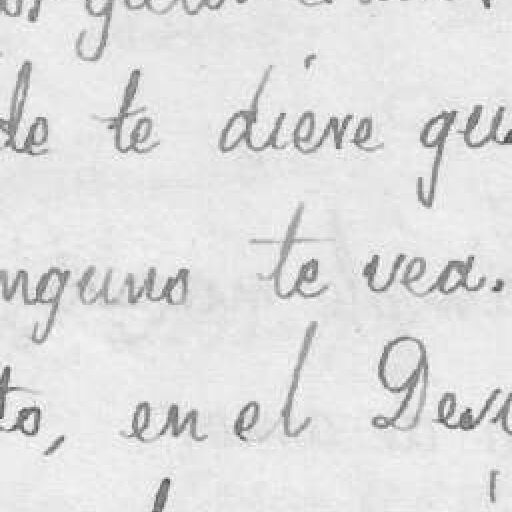 de te diere qu
nguno te vea.
to, en el Des